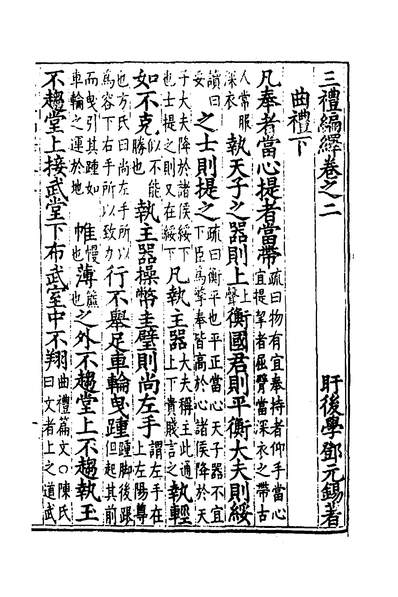 三禮編繹卷之二
曲禮下 盱後學鄧元錫著
凡奉者當心提者當帶疏曰物有宜奉持者仰手當心宜提挈者屈臂當深衣之帶古
人常服深衣執天子之器則上上聲衡國君則平衡大夫則綏
讀曰妥之士則提之疏曰衡平也平正當心天子器不宜下臣為擎奉皆高於心諸侯降於天
子大夫降於諸侯綏下也士提之則又在綏下凡執主器大夫稱主此通上下貴賤言之執輕
如不克似不能勝也執主器操幣圭璧則尚左手謂左手在上左陽尊
也方氏曰尚左手所以為容下右手所以致力行不舉足車輪曳踵踵脚後跟但起其前
而曳引其踵如車輪之運於地帷幔也薄簾也之外不趨堂上不趨執玉
不趨堂上接武堂下布武室中不翔曲禮篇文○陳氏曰文者上之道武